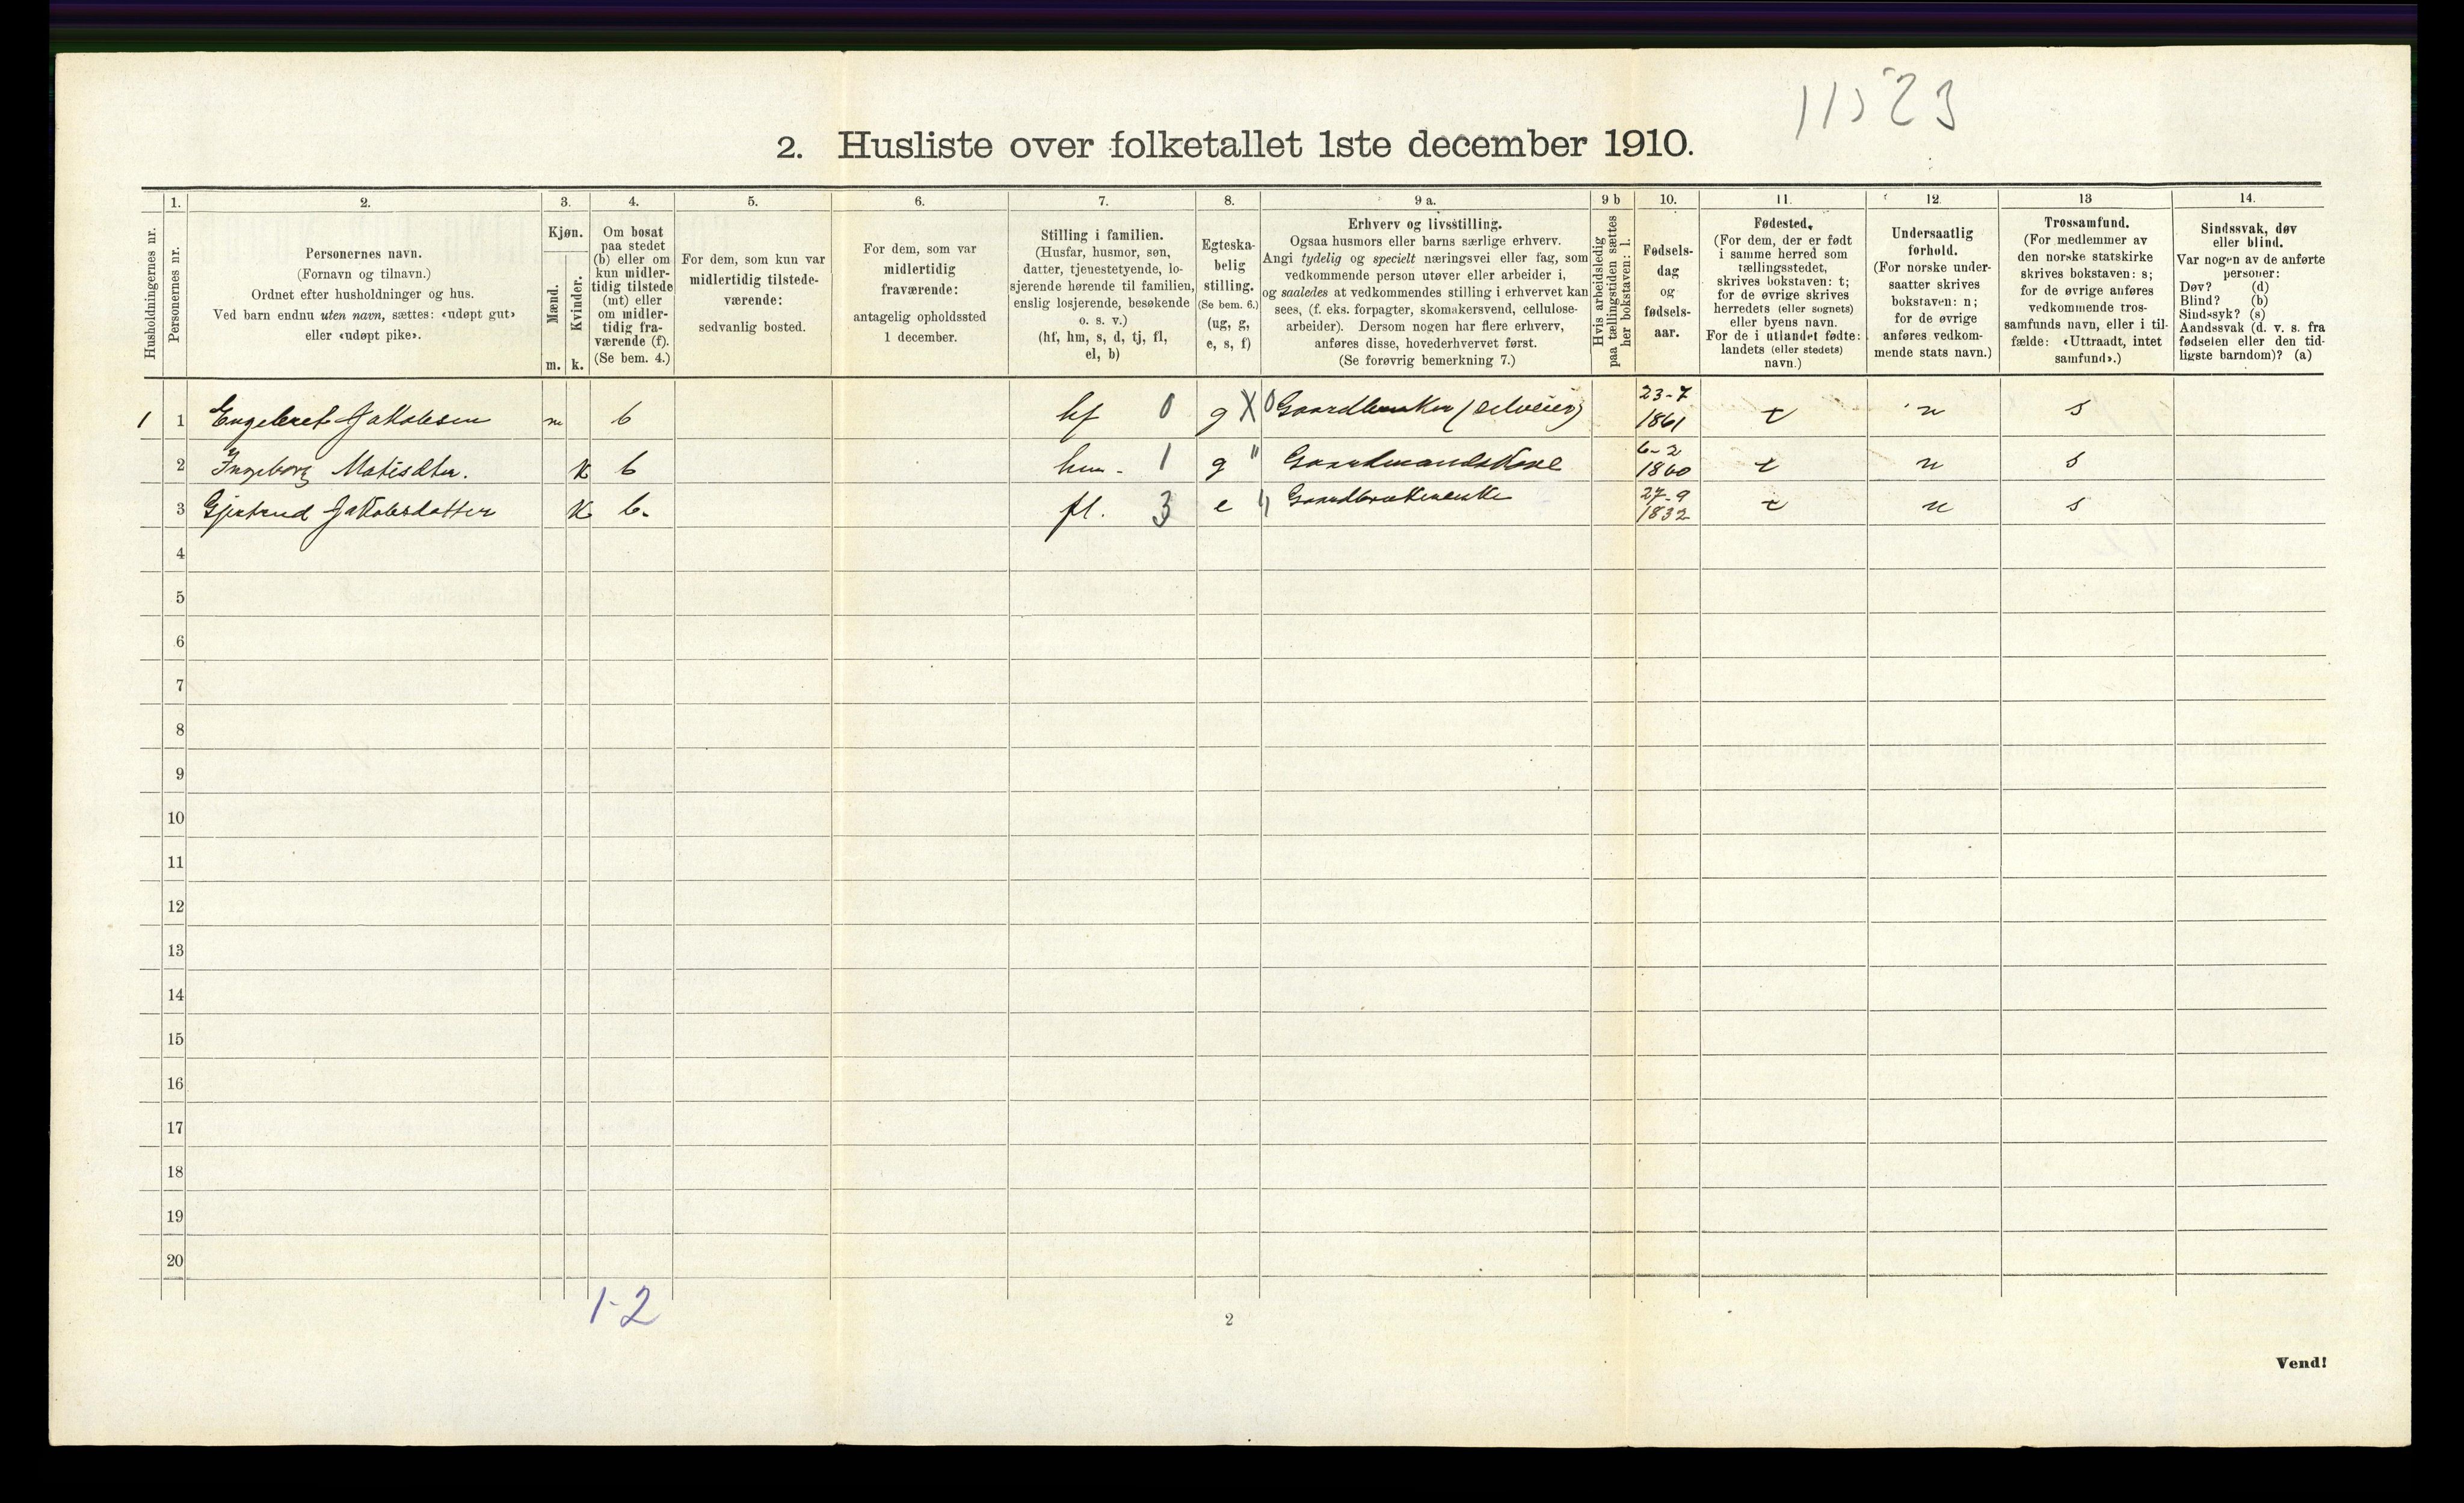 11523
2. Husliste over folketallet 1ste december 1910.
Husholdningernes nr.
1. Personernes nr.
2. Personernes navn. (Fornavn og tilnavn.) Ordnet efter husholdninger og hus. Ved barn endnu uten navn, sættes: «udøpt gut» eller «udøpt pike».
3. Kjøn. Mænd. m. Kvinder. k.
4. Om bosat paa stedet (b) eller om kun midlertidig tilstede (mt) eller om midlertidig fraværende (f). (Se bem. 4.)
5. For dem, som kun var midlertidig tilstedeværende: sedvanlig bosted.
6. For dem, som var midlertidig fraværende: antagelig opholdssted 1 december.
7. Stilling i familien. (Husfar, husmor, søn, datter, tjenestetyende, losjerende hørende til familien, enslig losjerende, besøkende o. s. v.) (hf, hm, s, d, tj, fl, el, b)
8. Egteskabelig stilling. (Se bem. 6.) (ug, g, e, s, f)
9 a. Erhverv og livsstilling. Ogsaa husmors eller barns særlige erhverv. Angi tydelig og specielt næringsvei eller fag, som vedkommende person utøver eller arbeider i, og saaledes at vedkommendes stilling i erhvervet kan sees, (f. eks. forpagter, skomakersvend, cellulosearbeider). Dersom nogen har flere erhverv, anføres disse, hovederhvervet først. (Se forøvrig bemerkning 7.)
9 b Hvis arbeidsledig paa tællingstiden sættes her bokstaven: l.
10. Fødselsdag og fødselsaar.
11. Fødested. (For dem, der er født i samme herred som tællingsstedet, skrives bokstaven: t; for de øvrige skrives herredets (eller sognets) eller byens navn. For de i utlandet fødte: landets (eller stedets) navn.)
12. Undersaatlig forhold. (For norske undersaatter skrives bokstaven: n; for de øvrige anføres vedkommende stats navn.)
13 Trossamfund. (For medlemmer av den norske statskirke skrives bokstaven: s; for de øvrige anføres vedkommende trossamfunds navn, eller i tilfælde: «Uttraadt, intet samfund».)
14. Sindssvak, døv eller blind. Var nogen av de anførte personer: Døv? (d) Blind? (b) Sindssyk? (s) Aandssvak (d. v. s. fra fødselen eller den tidligste barndom)? (a)
1 1 Engebret Jakobsen m b hf 0 g X 0 Gaardbruker (selveier) 23-7 1861 t n s
2 Ingeborg Matisdtr. K b hm - 1 g " Gaardmandskone 6-2 1860 t n s
3 Gjertrud Jakobsdatter K b. fl. 3 e " Gaardbrukerenke 27-9 1832 t n s
4
5
6
7
8
9
10
11
12
13
14
15
16
17
18
19
20
1-2
2
Vend!